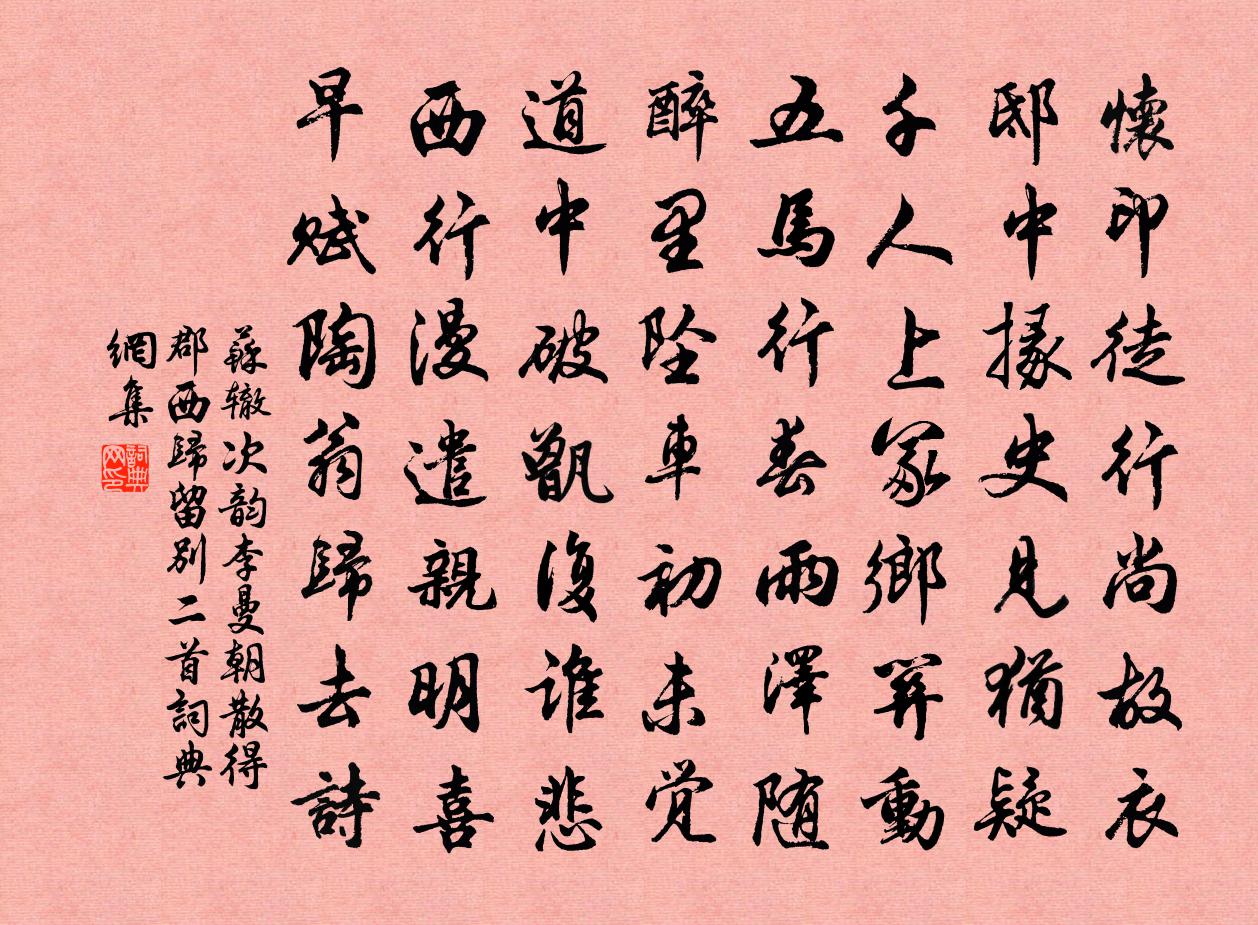 懷印徒行尚故衣
邸中掾史見猶疑
千人上冢鄉閭動
五馬行春雨澤随
醉里墜車初未覚
道中破甑復谁悲
西行漫遣親明喜
早赋陶翁歸去詩
蘇辙次韵李曼朝散得
郡西歸留別二首詞典
網集
詞典网印